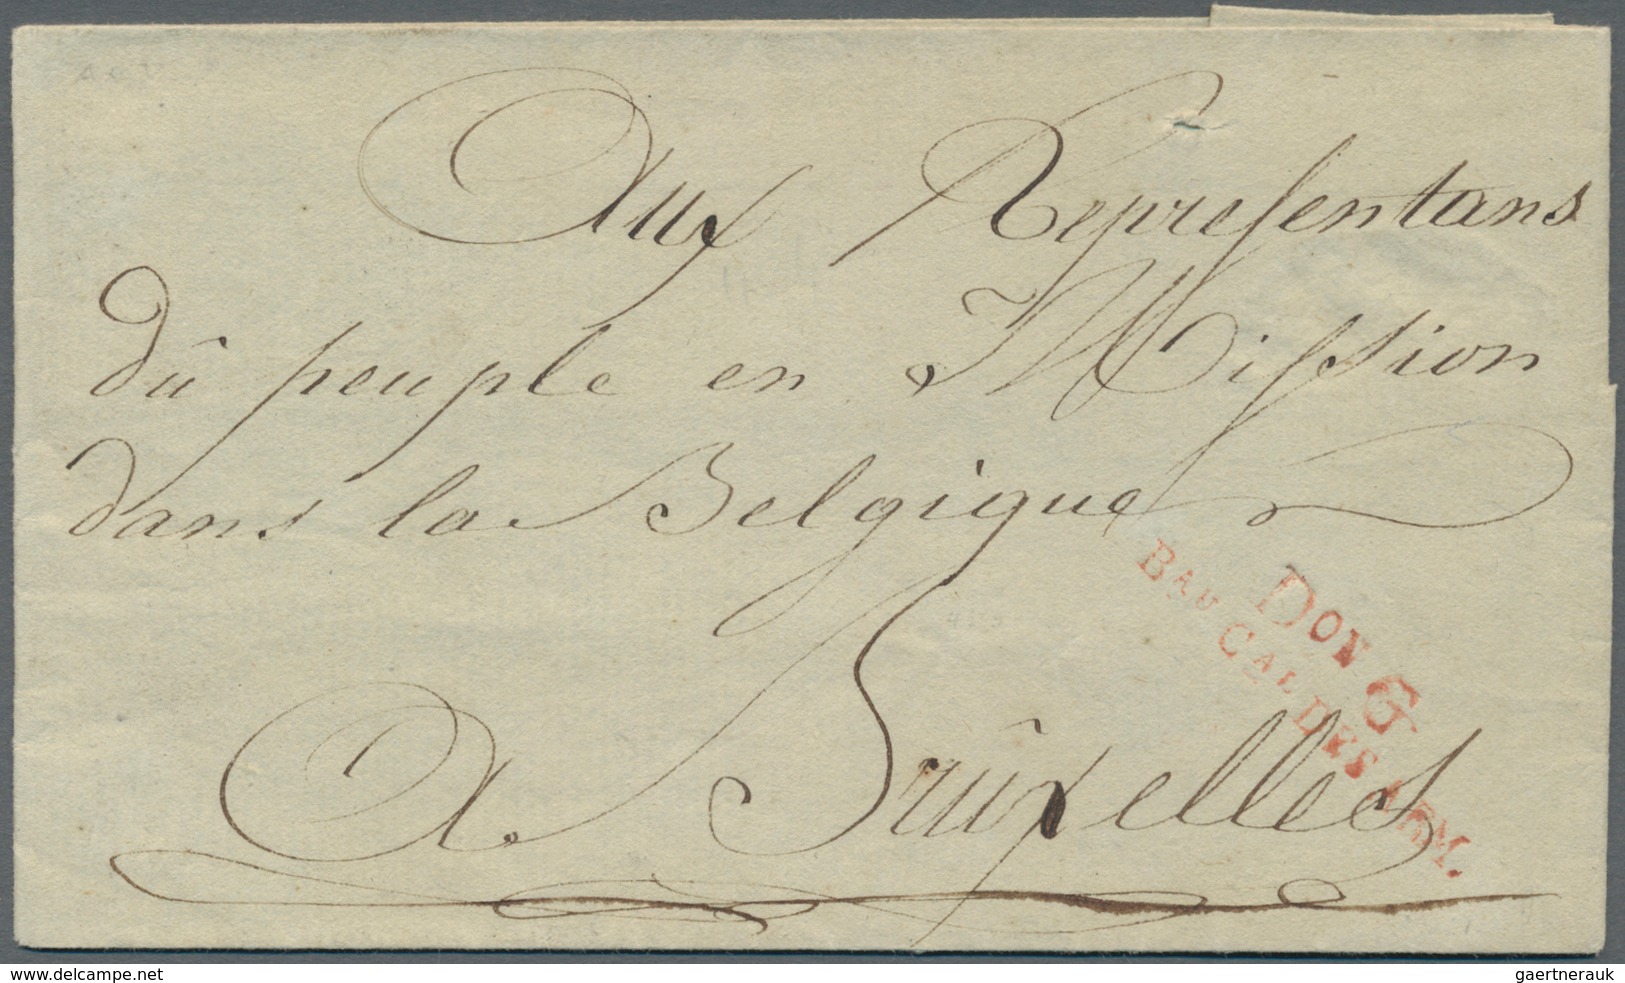 Aux Repreſentans
dû peuple en Miſsion
dans la Belgique
A Brûxelles
DON G
BAU GAL DES ARM.
www.delcampe.net
gaertnerauk